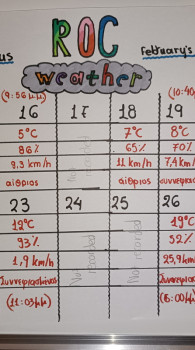 ROC
us
February's
weather
(9:56 μμ)
(10:40
16 17 18 19
5°C 7°C 8°C
86% 65% 70%
9.3 km/h Not recorded 11 km/h 7,4 km/
αίθριος αίθριος συννεφιασ
23 24 25 26
12°C 19°C
93% 52%
1,9 km/h Not recorded Not recorded 25,9 km/
Συννεφιασμένος Συννεφιασ
(11:03 μμ) (6:00 μμ